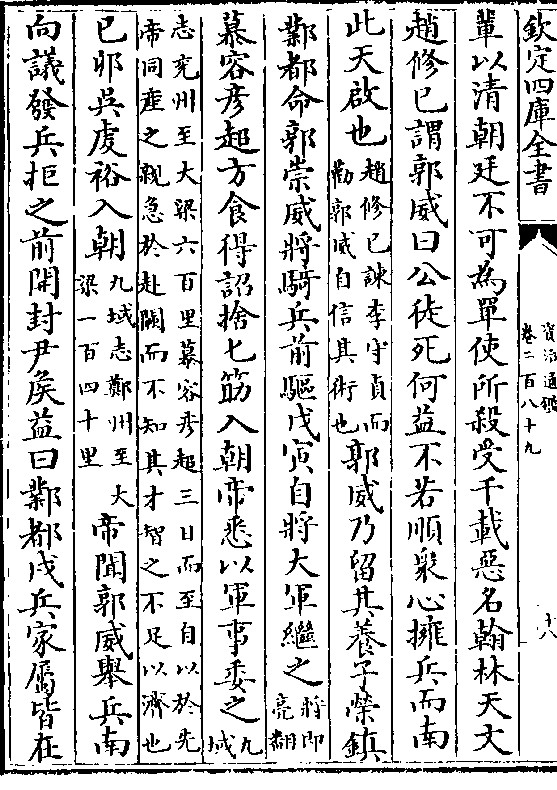 欽定四庫全書
資治通鑑
卷二百八十九
十八
輩以清朝廷不可為單使所殺受千載惡名翰林天文
趙修已謂郭威曰公徒死何益不若順衆心擁兵而南
此天啟也趙修已諫李守貞而勸郭威自信其術也郭威乃留其養子榮鎮
鄴都命郭崇威將騎兵前驅戊寅自將大軍繼之將即亮翻
慕容彦超方食得詔捨匕筯入朝帝悉以軍事委之九域
志兖州至大梁六百里慕容彦超三日而至自以於先
帝同産之親急於赴闕而不知其才智之不足以濟也
已夘吳虔裕入朝九域志鄭州至大梁一百四十里帝聞郭威舉兵南
向議發兵拒之前開封尹侯益曰鄴都戍兵家屬皆在